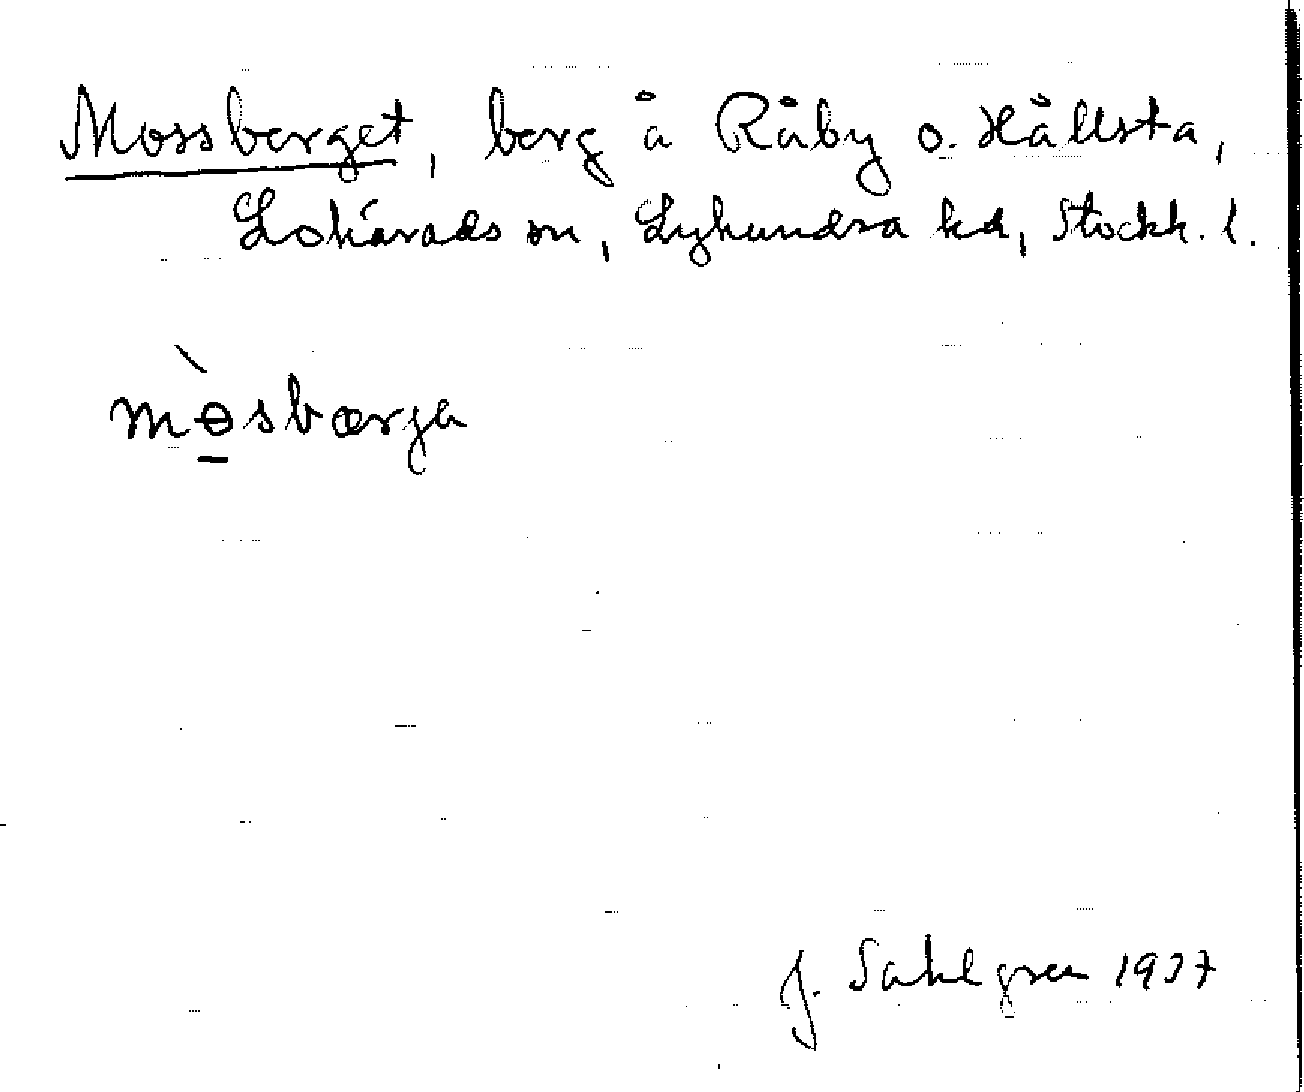 Mossberget, berg å Råby o. Hållsta,
Lohärads sn, Lyhundra hd, Stockh. l.
mɵ̀sbærja
J. Sahlgren 1937